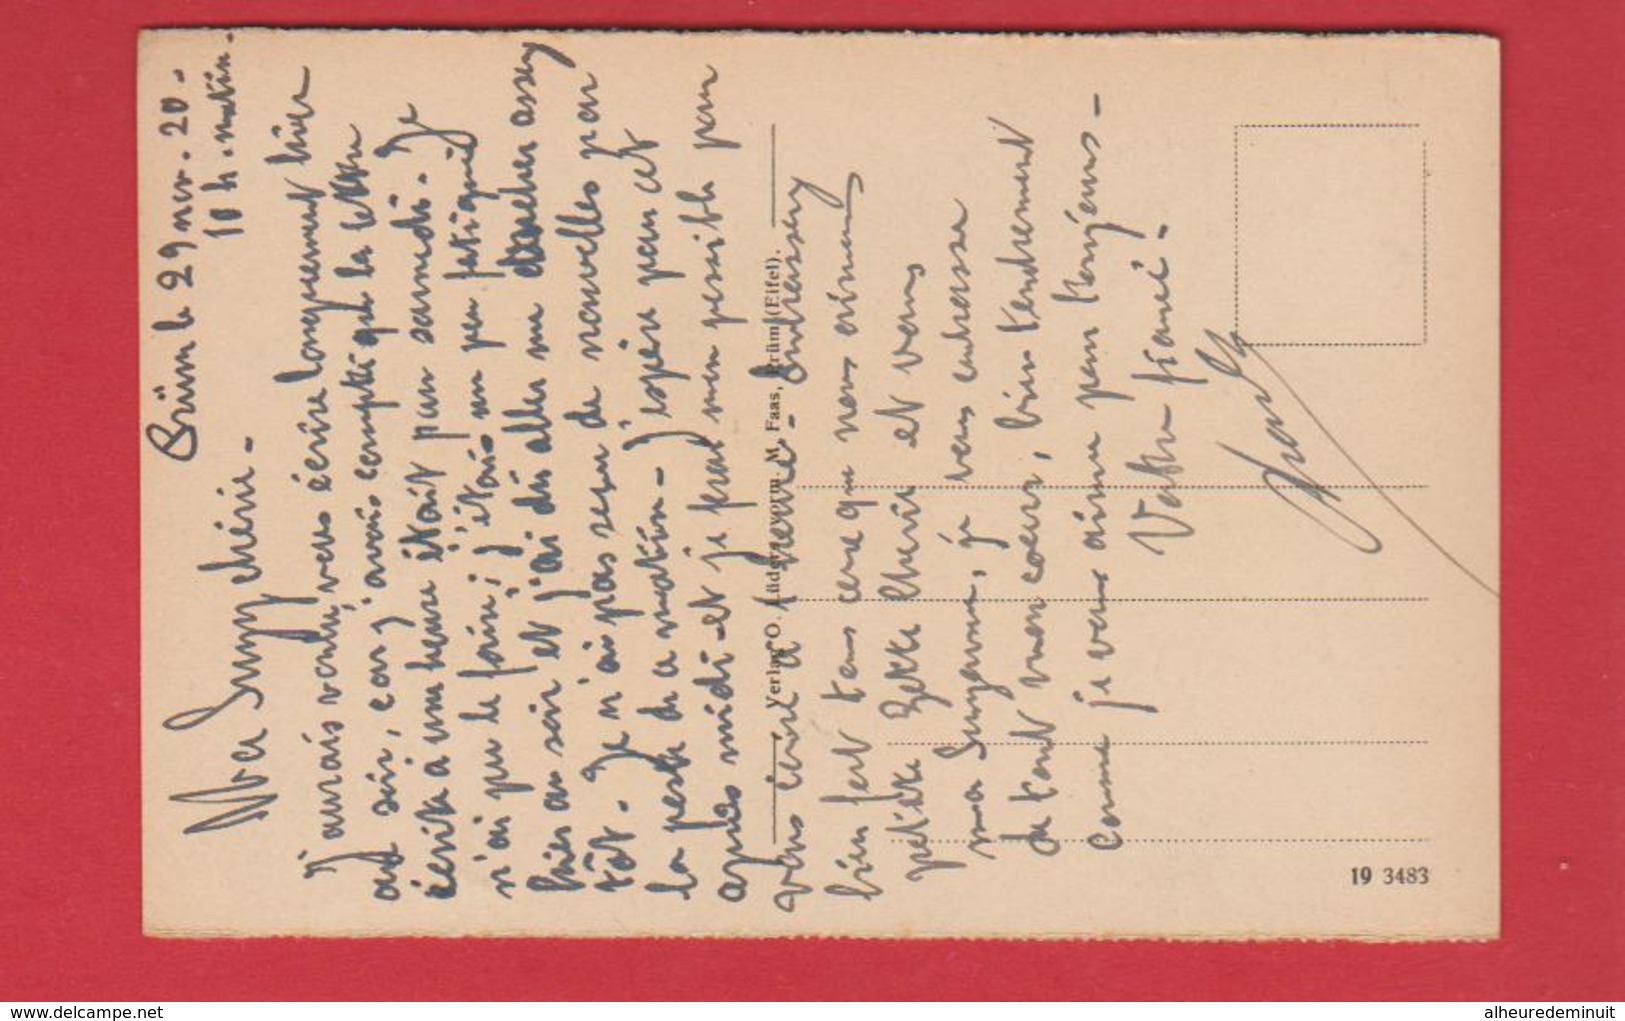 Prüm le 29 nov. 20-
10 h. matin.
Ma Suzy chérie-
J'aurais voulu vous écrire longuement hier
au soir, car j'avais compté que la lettre
écrite à une heure était pour samedi. Je
n'ai pu le faire; j'étais un peu fatigué
hier au soir et j'ai dû aller me coucher assez
tôt. Je n'ai pas reçu de nouvelles par
la poste de ce matin- J'espère pour cet
après midi- et je ferai mon possible pour
vous écrire à 1 heure- Embrassez
bien fort tous ceux que nous aimons
petite chérie et vous
ma Suzanne, je vous embrasse
de tout mon coeur, bien tendrement
comme je vous aime pour toujours-
Votre fiancé-
Verlag O. Lüders, Verm. M. Faas, Prüm (Eifel).
19 3483
alheuredeminuit
www.delcampe.net